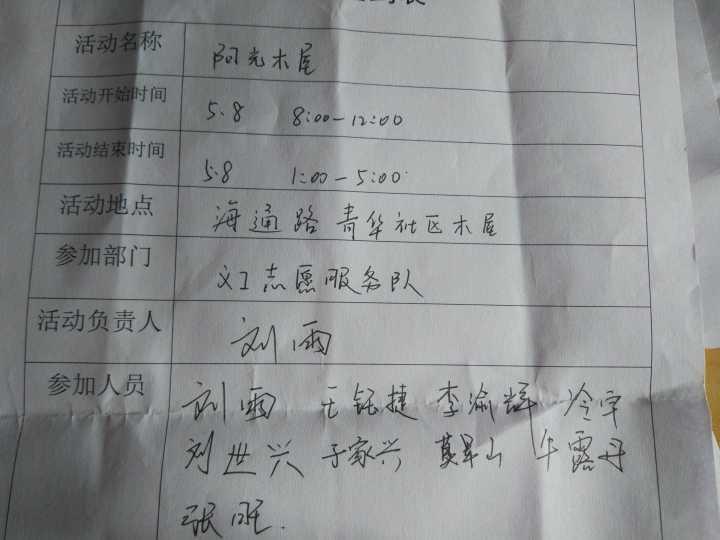 活动名称 阿光木屋
活动开始时间 5.8 8:00-12:00
活动结束时间 5.8 1:00-5:00
活动地点 海通路青华社区木屋
参加部门 义工志愿服务队
活动负责人 刘雨
参加人员 刘雨 王钰捷 李渝辉 冷宇
刘世兴 于家兴 山 牛露丹
张旺.